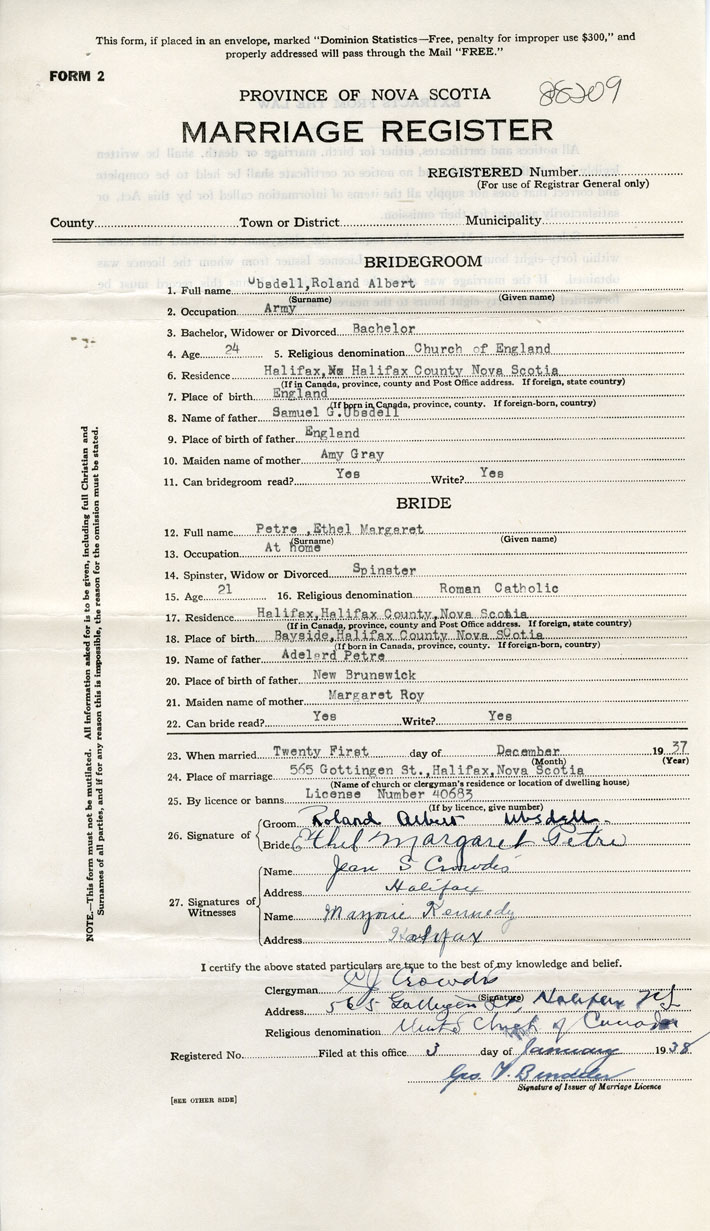 This form, if placed in an envelope, marked "Dominion Statistics—Free, penalty for improper use $300," and
properly addressed will pass through the Mail "FREE."
FORM 2
PROVINCE OF NOVA SCOTIA
88209
MARRIAGE REGISTER
REGISTERED Number
(For use of Registrar General only)
County Town or District Municipality
BRIDEGROOM
1. Full name Ubsdell,Roland Albert
(Surname) (Given name)
2. Occupation Army
3. Bachelor, Widower or Divorced Bachelor
4. Age 24 5. Religious denomination Church of England
6. Residence Halifax, Halifax County Nova Scotia
(If in Canada, province, county and Post Office address. If foreign, state country)
7. Place of birth England
(If born in Canada, province, county. If foreign-born, country)
8. Name of father Samuel G.Ubsdell
9. Place of birth of father England
10. Maiden name of mother Amy Gray
11. Can bridegroom read? Yes Write? Yes
BRIDE
12. Full name Petre ,Ethel Margaret
(Surname) (Given name)
13. Occupation At home
14. Spinster, Widow or Divorced Spinster
15. Age 21 16. Religious denomination Roman Catholic
17. Residence Halifax,Halifax County,Nova Scotia
(If in Canada, province, county and Post Office address. If foreign, state country)
18. Place of birth Bayside,Halifax County Nova SCotia
(If born in Canada, province, county. If foreign-born, country)
19. Name of father Adelard Petre
20. Place of birth of father New Brunswick
21. Maiden name of mother Margaret Roy
22. Can bride read? Yes Write? Yes
23. When married Twenty First day of December 1937
(Month) (Year)
24. Place of marriage 565 Gottingen St.,Halifax,Nova Scotia
(Name of church or clergyman's residence or location of dwelling house)
25. By licence or banns License Number 40683
(If by licence, give number)
26. Signature of
Groom Roland Albert Ubsdell
Bride Ethel Margaret Petre
27. Signatures of Witnesses
Name Jean S Crowdis
Address Halifax
Name Marjorie Kennedy
Address Halifax
I certify the above stated particulars are true to the best of my knowledge and belief.
Clergyman CJ Crowdis
(Signature)
Address 565 Gottingen St, Halifax NS
Religious denomination United Church of Canada
Registered No. Filed at this office 3 day of January 1938
Geo.
Signature of Issuer of Marriage Licence
[SEE OTHER SIDE]
NOTE.—This form must not be mutilated. All information asked for is to be given, including full Christian and
Surnames of all parties, and if for any reason this is impossible, the reason for the omission must be stated.